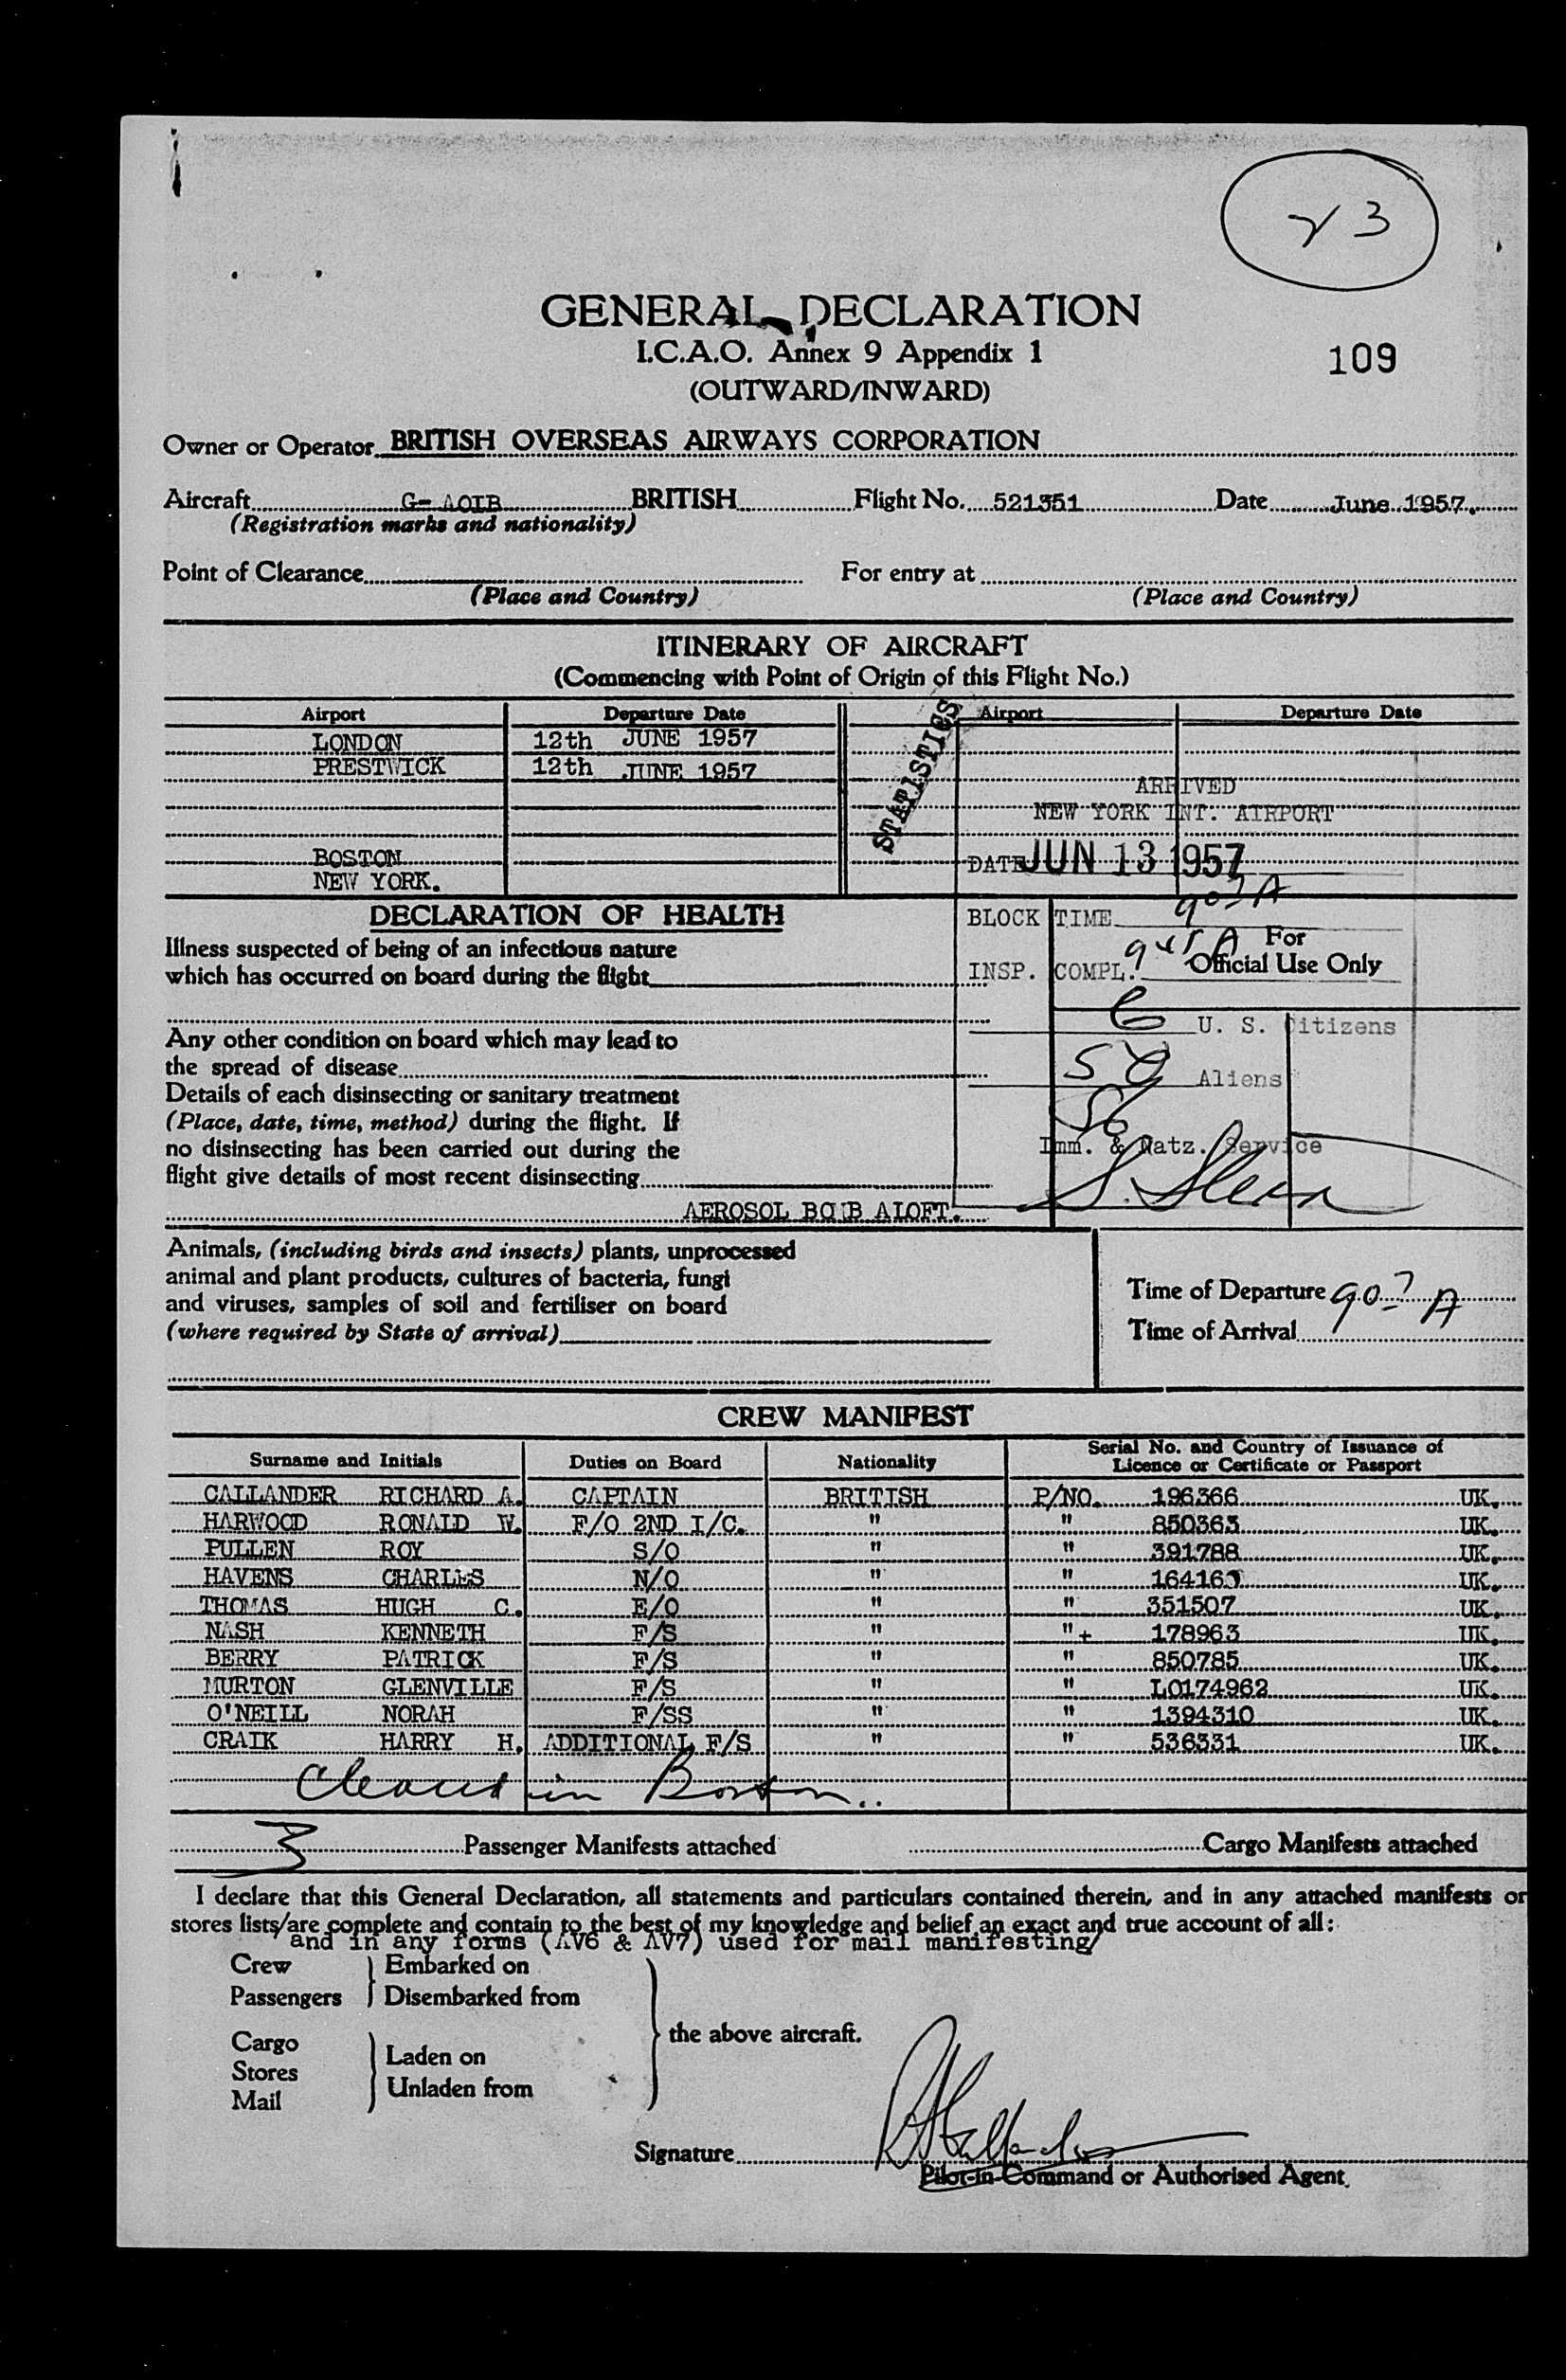 23
GENERAL DECLARATION
I.C.A.O. Annex 9 Appendix 1
109
(OUTWARD/INWARD)
Owner or Operator BRITISH OVERSEAS AIRWAYS CORPORATION
Aircraft G- AOIB BRITISH Flight No. 521351 Date June 1957.
(Registration marks and nationality)
Point of Clearance For entry at
(Place and Country) (Place and Country)
ITINERARY OF AIRCRAFT
(Commencing with Point of Origin of this Flight No.)
Airport Departure Date Airport Departure Date
STATISTICS
LONDON 12th JUNE 1957
PRESTWICK 12th JUNE 1957
ARRIVED
NEW YORK INT. AIRPORT
BOSTON
DATE JUN 13 1957
NEW YORK.
DECLARATION OF HEALTH
BLOCK TIME
Illness suspected of being of an infectious nature
which has occurred on board during the flight
For
Official Use Only
INSP. COMPL. 945 A
6 U. S. Citizens
Any other condition on board which may lead to
the spread of disease
50 Aliens
56
Details of each disinsecting or sanitary treatment
(Place, date, time, method) during the flight. If
no disinsecting has been carried out during the
flight give details of most recent disinsecting
Imm. & Natz. Service
AEROSOL BOMB ALOFT.
Animals, (including birds and insects) plants, unprocessed
animal and plant products, cultures of bacteria, fungi
and viruses, samples of soil and fertiliser on board
(where required by State of arrival)
Time of Departure
Time of Arrival
CREW MANIFEST
Surname and Initials Duties on Board Nationality Serial No. and Country of Issuance of
Licence or Certificate or Passport
CALLANDER RICHARD A. CAPTAIN BRITISH P/NO. 196366 UK.
HARWOOD RONALD W. F/O 2ND I/C. " " 850363 UK.
PULLEN ROY S/O " " 391788 UK.
HAVENS CHARLES N/O " " UK.
THOMAS HUGH C. E/O " " 351507 UK.
NASH KENNETH F/S " "+ 178963 UK.
BERRY PATRICK F/S " " 850785 UK.
MURTON GLENVILLE F/S " " L0174962 UK.
O'NEILL NORAH F/SS " " 1394310 UK.
CRAIK HARRY H. ADDITIONAL F/S " " 536331 UK.
Cleared in Boston..
3 Passenger Manifests attached Cargo Manifests attached
I declare that this General Declaration, all statements and particulars contained therein, and in any attached manifests or
stores lists/are complete and contain to the best of my knowledge and belief an exact and true account of all:
and in any forms (AV6 & AV7) used for mail manifesting/
Crew Embarked on
Passengers Disembarked from
the above aircraft.
Cargo
Stores Laden on
Mail Unladen from
Signature
Pilot-in-Command or Authorised Agent.